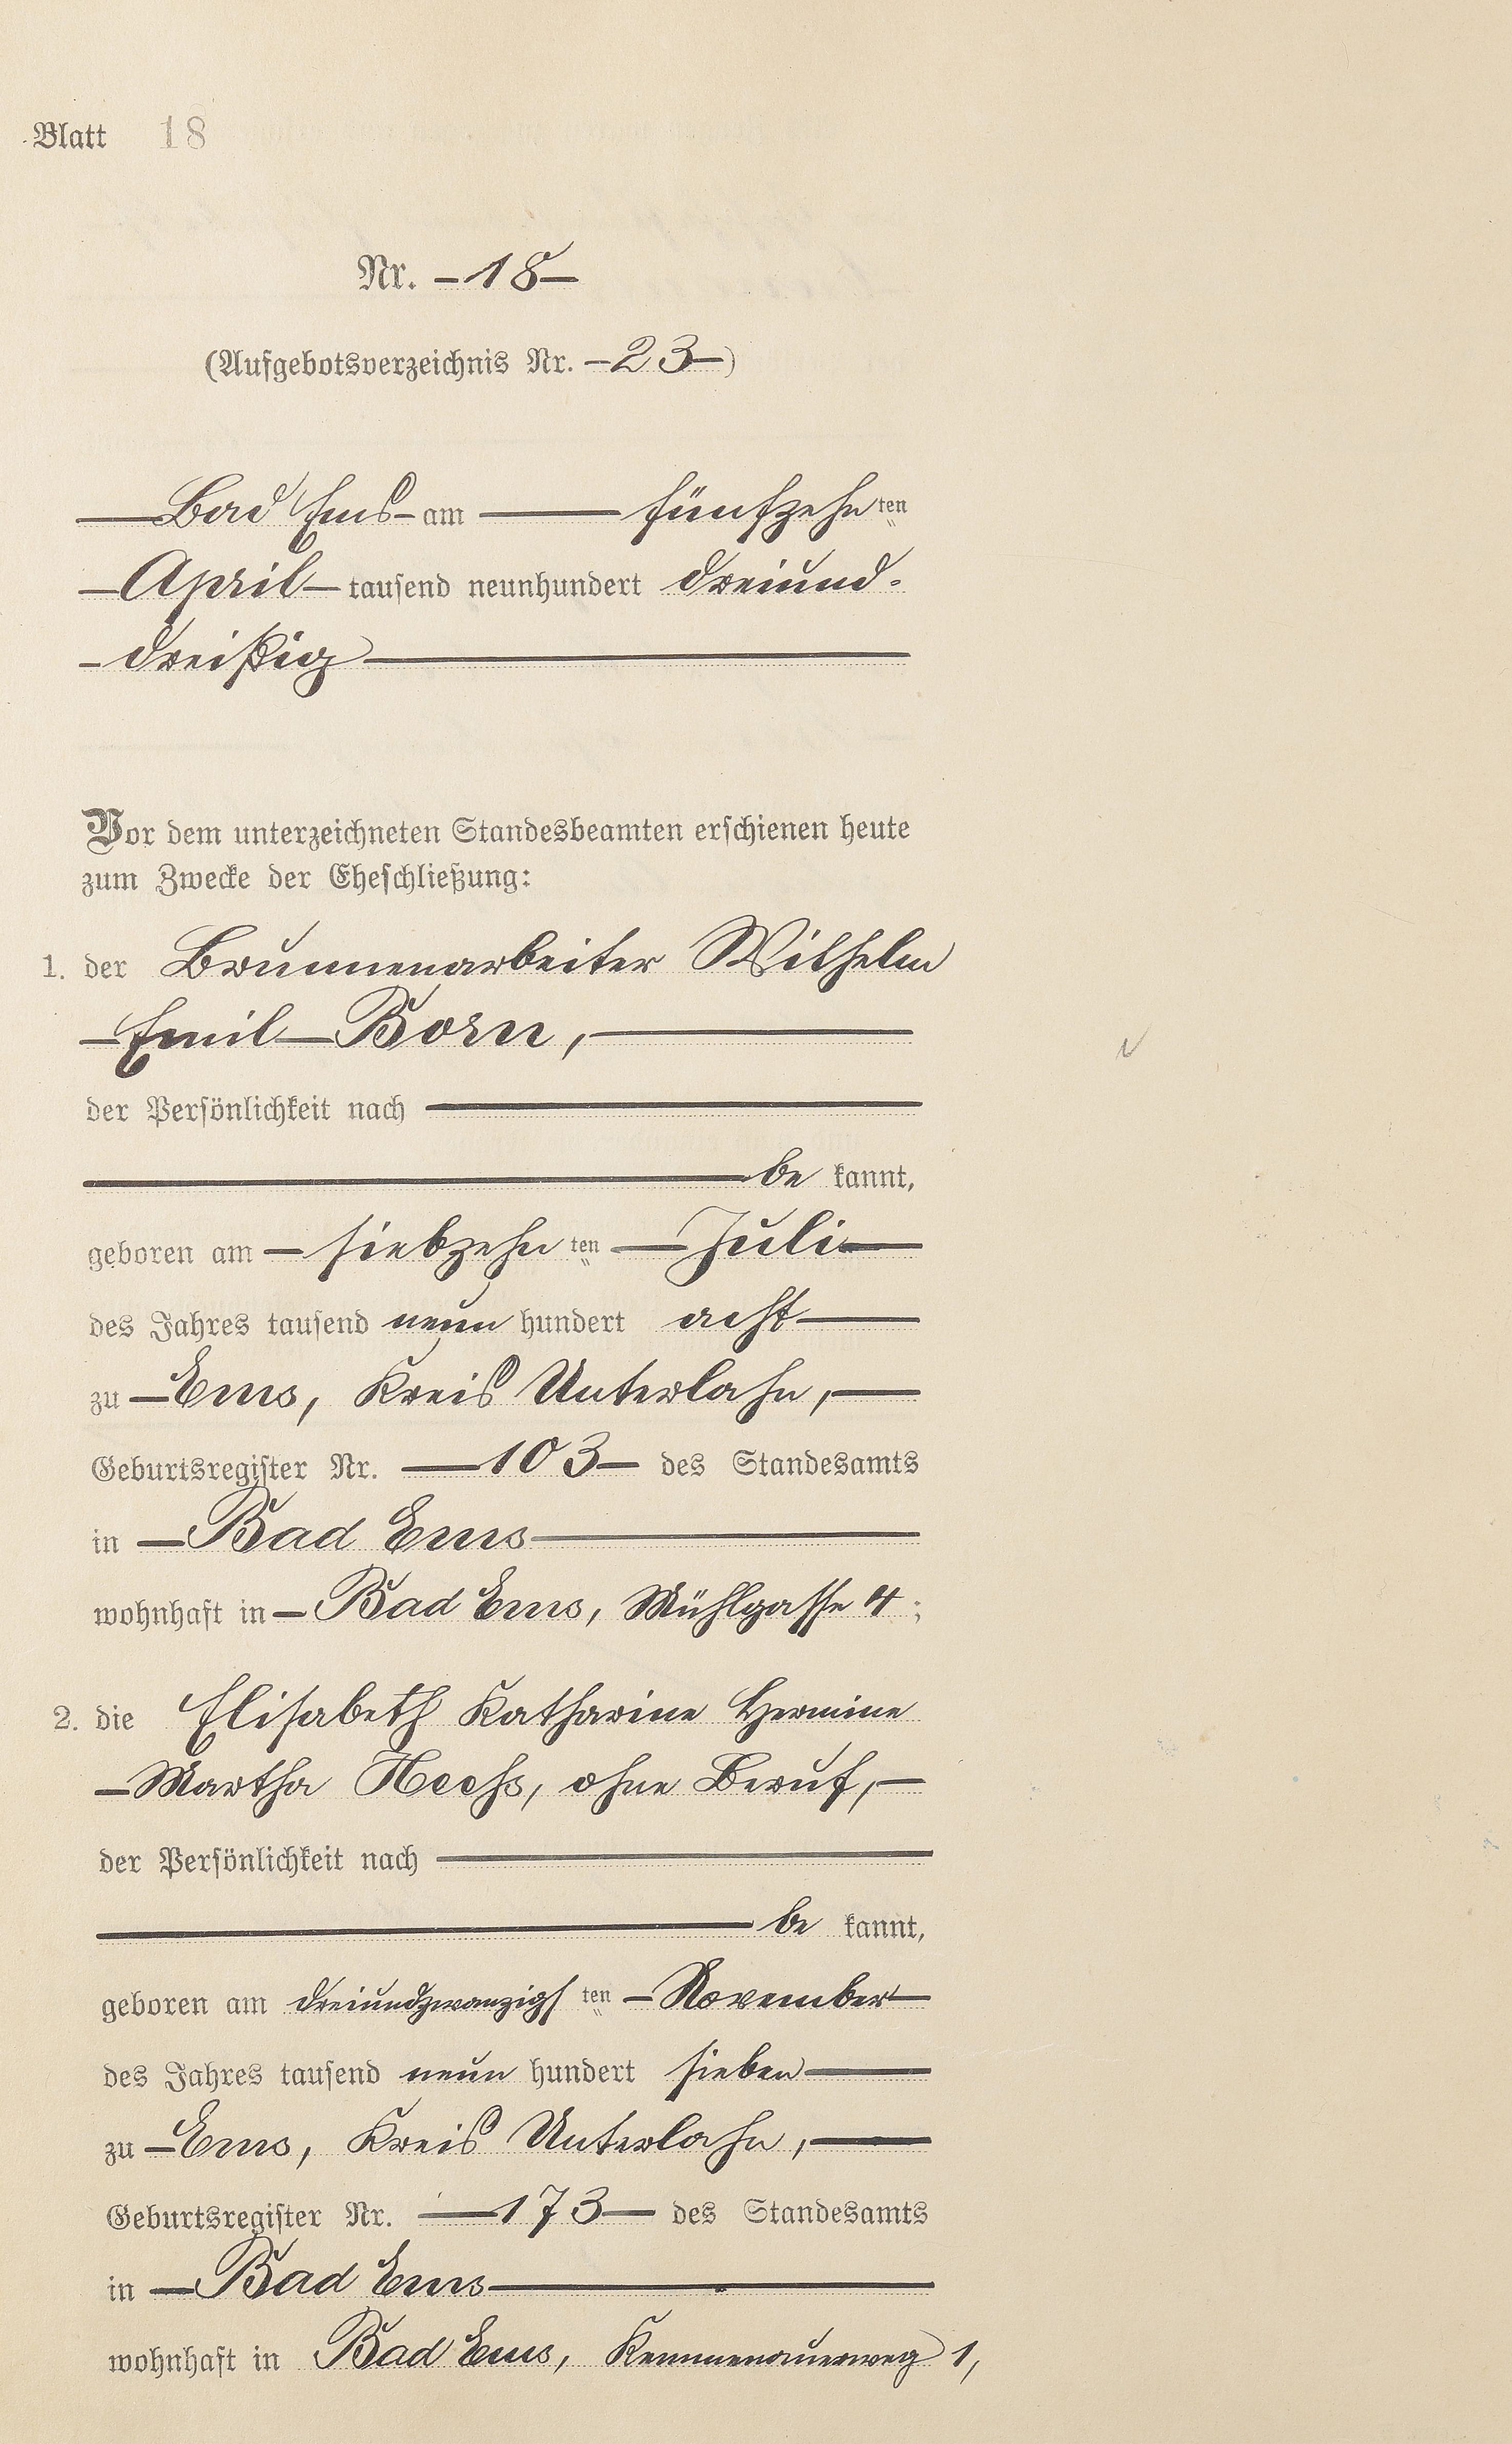 Blatt 18
Nr. – 18 –
(Aufgebotsverzeichnis Nr. – 23 –)
— Bad Ems – am — fünfzehn ten
– April – tausend neunhundert dreiund-
– dreißig —
Vor dem unterzeichneten Standesbeamten erschienen heute
zum Zwecke der Eheschließung:
1. der Brunnenarbeiter Wilhelm
– Emil – Born, —
der Persönlichkeit nach —
— be kannt,
geboren am – siebzehn ten — Juli —
des Jahres tausend neun hundert acht —
zu – Ems, Kreis Unterlahn, —
Geburtsregister Nr. — 103 – des Standesamts
in – Bad Ems —
wohnhaft in – Bad Ems, Mühlgasse 4 ;
2. die Elisabeth Katharine Hermine
– Martha Hechs, ohne Beruf, –
der Persönlichkeit nach —
— be kannt,
geboren am dreiundzwanzigs ten – November –
des Jahres tausend neun hundert sieben —
zu – Ems, Kreis Unterlahn, —
Geburtsregister Nr. — 173 — des Standesamts
in – Bad Ems —
wohnhaft in Bad Ems, Kemmenauerweg 1,